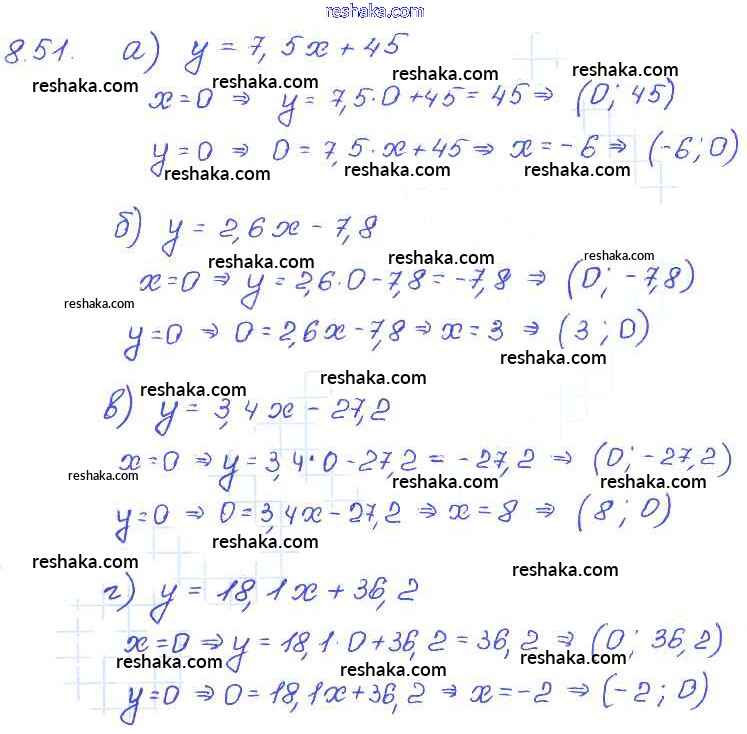 reshaka.com
8.51. а) y = 7,5x + 45
reshaka.com reshaka.com reshaka.com
x=0 ⇒ y = 7,5·0+45 = 45 ⇒ (0; 45)
reshaka.com reshaka.com
y=0 ⇒ 0 = 7,5·x+45 ⇒ x = -6 ⇒ (-6; 0)
reshaka.com reshaka.com reshaka.com
б) y = 2,6x - 7,8
reshaka.com reshaka.com reshaka.com
x=0 ⇒ y = 2,6·0-7,8 = -7,8 ⇒ (0; -7,8)
reshaka.com reshaka.com
y=0 ⇒ 0 = 2,6x-7,8 ⇒ x = 3 ⇒ (3; 0)
reshaka.com reshaka.com
reshaka.com reshaka.com
в) y = 3,4x - 27,2
reshaka.com
x=0 ⇒ y = 3,4·0-27,2 = -27,2 ⇒ (0; -27,2)
reshaka.com reshaka.com reshaka.com
y=0 ⇒ 0 = 3,4x-27,2 ⇒ x = 8 ⇒ (8; 0)
reshaka.com
reshaka.com reshaka.com
г) y = 18,1x + 36,2
x=0 ⇒ y = 18,1·0+36,2 = 36,2 ⇒ (0; 36,2)
reshaka.com reshaka.com reshaka.com
y=0 ⇒ 0 = 18,1x+36,2 ⇒ x = -2 ⇒ (-2; 0)
reshaka.com reshaka.com